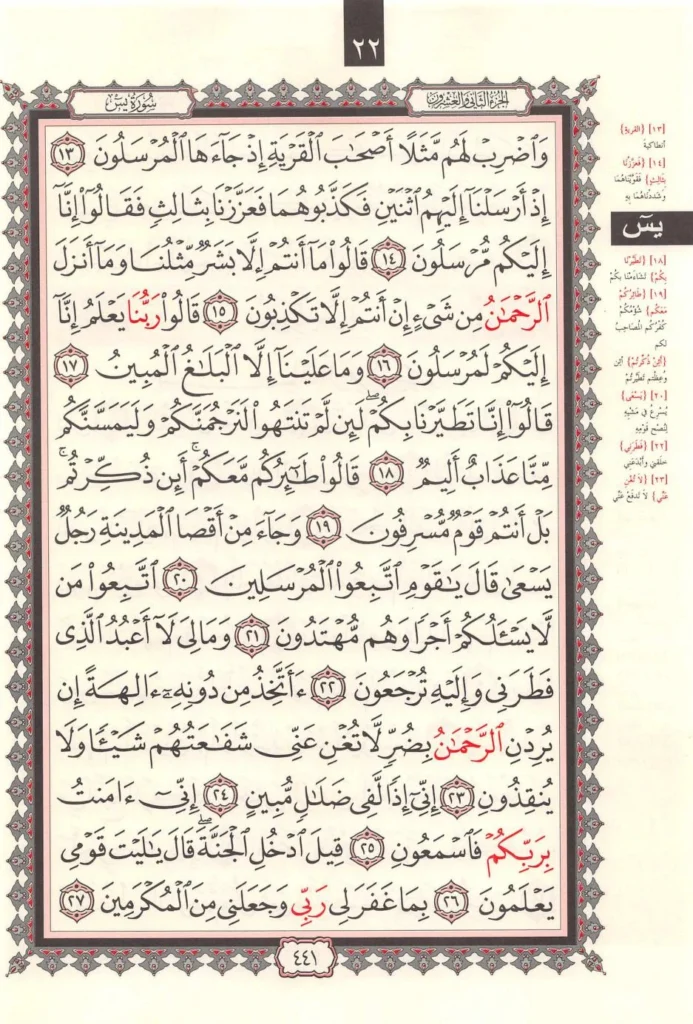 ٢٢
الجزء الثاني والعشرون
سورة يس
وَٱضْرِبْ لَهُم مَّثَلًا أَصْحَٰبَ ٱلْقَرْيَةِ إِذْ جَآءَهَا ٱلْمُرْسَلُونَ ١٣
إِذْ أَرْسَلْنَآ إِلَيْهِمُ ٱثْنَيْنِ فَكَذَّبُوهُمَا فَعَزَّزْنَا بِثَالِثٍ فَقَالُوٓا۟ إِنَّآ
إِلَيْكُم مُّرْسَلُونَ ١٤ قَالُوا۟ مَآ أَنتُمْ إِلَّا بَشَرٌ مِّثْلُنَا وَمَآ أَنزَلَ
ٱلرَّحْمَٰنُ مِن شَىْءٍ إِنْ أَنتُمْ إِلَّا تَكْذِبُونَ ١٥ قَالُوا۟ رَبُّنَا يَعْلَمُ إِنَّآ
إِلَيْكُمْ لَمُرْسَلُونَ ١٦ وَمَا عَلَيْنَآ إِلَّا ٱلْبَلَٰغُ ٱلْمُبِينُ ١٧
قَالُوٓا۟ إِنَّا تَطَيَّرْنَا بِكُمْ ۖ لَئِن لَّمْ تَنتَهُوا۟ لَنَرْجُمَنَّكُمْ وَلَيَمَسَّنَّكُم
مِّنَّا عَذَابٌ أَلِيمٌ ١٨ قَالُوا۟ طَٰٓئِرُكُم مَّعَكُمْ ۚ أَئِن ذُكِّرْتُم ۚ
بَلْ أَنتُمْ قَوْمٌ مُّسْرِفُونَ ١٩ وَجَآءَ مِنْ أَقْصَا ٱلْمَدِينَةِ رَجُلٌ
يَسْعَىٰ قَالَ يَٰقَوْمِ ٱتَّبِعُوا۟ ٱلْمُرْسَلِينَ ٢٠ ٱتَّبِعُوا۟ مَن
لَّا يَسْـَٔلُكُمْ أَجْرًا وَهُم مُّهْتَدُونَ ٢١ وَمَا لِىَ لَآ أَعْبُدُ ٱلَّذِى
فَطَرَنِى وَإِلَيْهِ تُرْجَعُونَ ٢٢ ءَأَتَّخِذُ مِن دُونِهِۦٓ ءَالِهَةً إِن
يُرِدْنِ ٱلرَّحْمَٰنُ بِضُرٍّ لَّا تُغْنِ عَنِّى شَفَٰعَتُهُمْ شَيْـًٔا وَلَا
يُنقِذُونِ ٢٣ إِنِّىٓ إِذًا لَّفِى ضَلَٰلٍ مُّبِينٍ ٢٤ إِنِّىٓ ءَامَنتُ
بِرَبِّكُمْ فَٱسْمَعُونِ ٢٥ قِيلَ ٱدْخُلِ ٱلْجَنَّةَ ۖ قَالَ يَٰلَيْتَ قَوْمِى
يَعْلَمُونَ ٢٦ بِمَا غَفَرَ لِى رَبِّى وَجَعَلَنِى مِنَ ٱلْمُكْرَمِينَ ٢٧
٤٤١
[١٣] ﴿القرية﴾
أنطاكية
[١٤] ﴿فَعَزَّزْنَا
بِثَالِثٍ﴾ فَقَوَّيْنَاهُمَا
وَشَدَدْنَاهُمَا بِهِ
يسٓ
[١٨] ﴿تَطَيَّرْنَا
بِكُمْ﴾ تَشَاءَمْنَا بِكُمْ
[١٩] ﴿طَائِرُكُمْ
مَعَكُمْ﴾ شُؤْمُكُمْ
كُفْرُكُم المُصَاحِبُ
لكم
﴿أَئِنْ ذُكِّرْتُمْ﴾ أئن
وُعِظْتُم تَطَيَّرْتُمْ
[٢٠] ﴿يَسْعَى﴾
يُسْرِعُ في مَشْيِهِ
لِنُصْحِ قَوْمِهِ
[٢٢] ﴿فَطَرَنِي﴾
خَلَقَنِي وَأَبْدَعَنِي
[٢٣] ﴿لَا تُغْنِ
عَنِّي﴾ لَا تَدْفَعُ عَنِّي